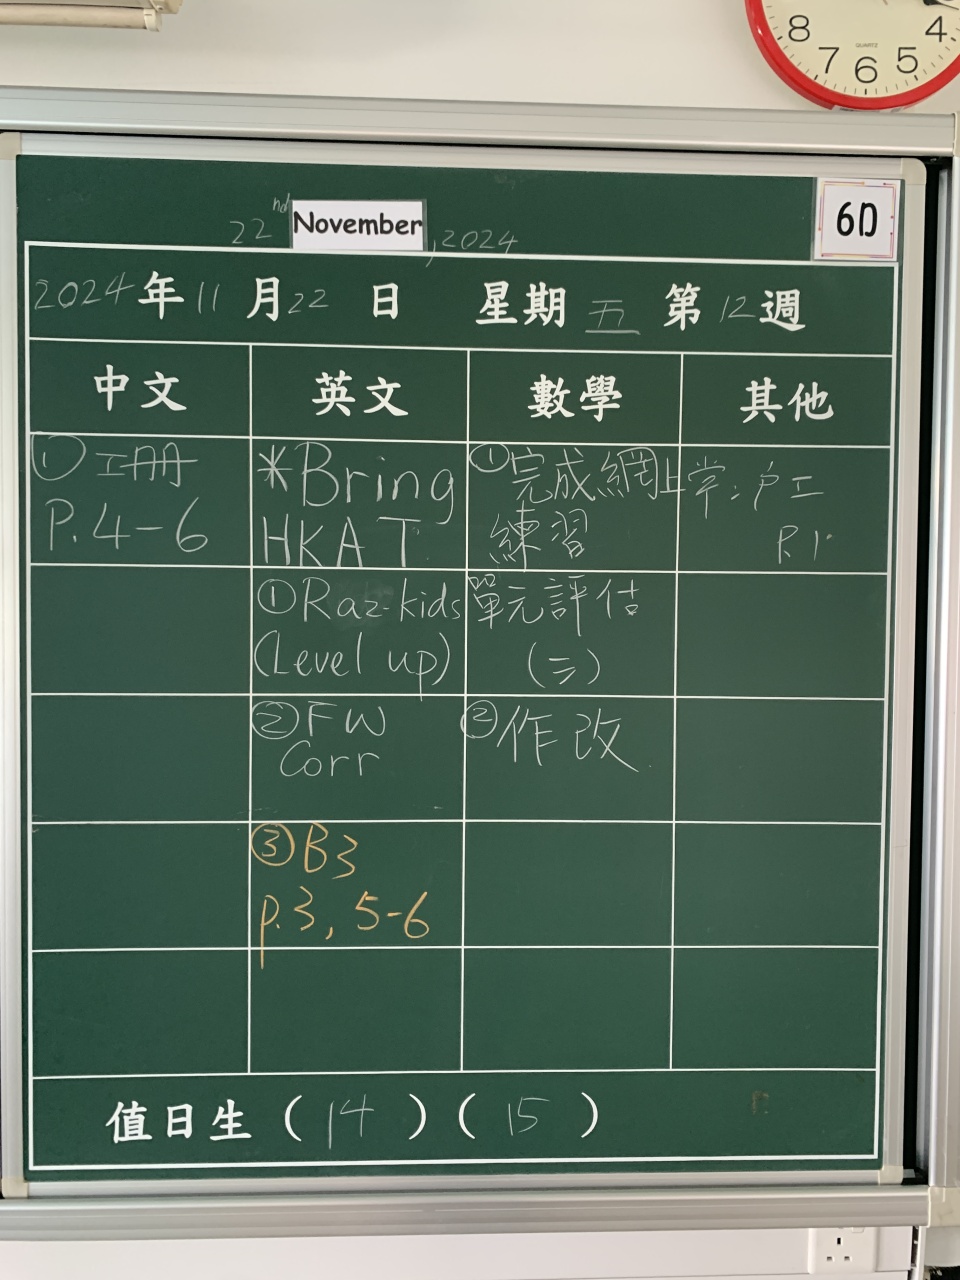 8 7 6 5 4
QUARTZ
22nd November, 2024
6D
2024年11月22日 星期五 第12週
中文 英文 數學 其他
① 工冊
P.4-6
*Bring
HKAT
① 完成網上
練習
常:
P.1
① Raz-kids
(Level up)
單元評估
(三)
② FW
Corr
② 作改
③ B3
p.3, 5-6
值日生 (14) (15)